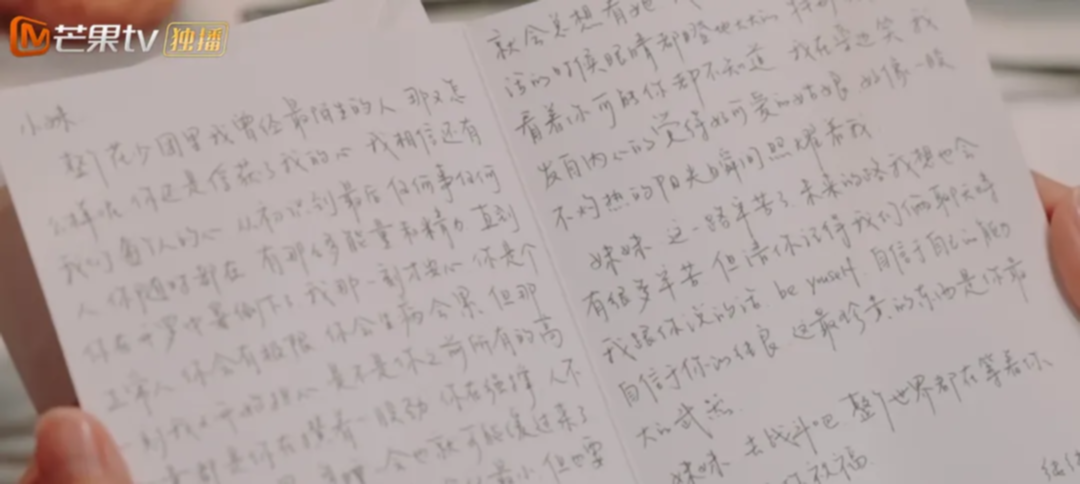 芒果tv 独播
小妹
整个花少团里我曾经最陌生的人 那又怎
么样呢 你还是俘获了我的心 我相信还有
我们每个人的心 从初识到最后 任何事任何
人 你随时都在 有那份能量和精力 直到
你在 要倒下了 我那一刻才安心 你是个
正常人 你会有极限 你会生病会累 但那
一刻我又开始担心 是不是你之前所有的高
都是你在攒着一股劲 你在硬撑 人不
会也就可能缓过来了
最小 但也要
就会总想看她
话的时候眼睛都瞪 大大的
看着 你可能你都不知道 我在旁边笑 我
发自内心的觉得好可爱的姑娘 好像一股
不灼热的阳光瞬间照耀着我
妹妹 这一路辛苦了 未来的路我想也会
有很多辛苦 但请你记得我们俩聊天时
我跟你说的话 be yourself 自信于自己的能力
自信于你的善良 这最珍贵的东西是你最
大的武器
妹妹 去战斗吧 整个世界都在等着你
祝福